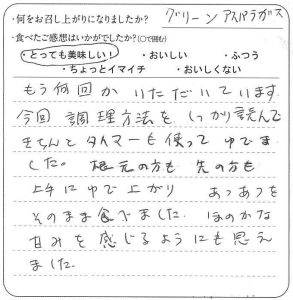 ・何をお召し上がりになりましたか？ グリーンアスパラガス
・食べたご感想はいかがでしたか？(○で囲む)
・とっても美味しい！ ・おいしい ・ふつう
・ちょっとイマイチ ・おいしくない
もう何回か いただいています
今回 調理方法を しっかり読んで
きちんとタイマーも使って ゆでま
した。 根元の方も 先の方も
上手にゆで上がり あつあつを
そのまま食べました。ほのかな
甘みを感じるようにも思え
ました。